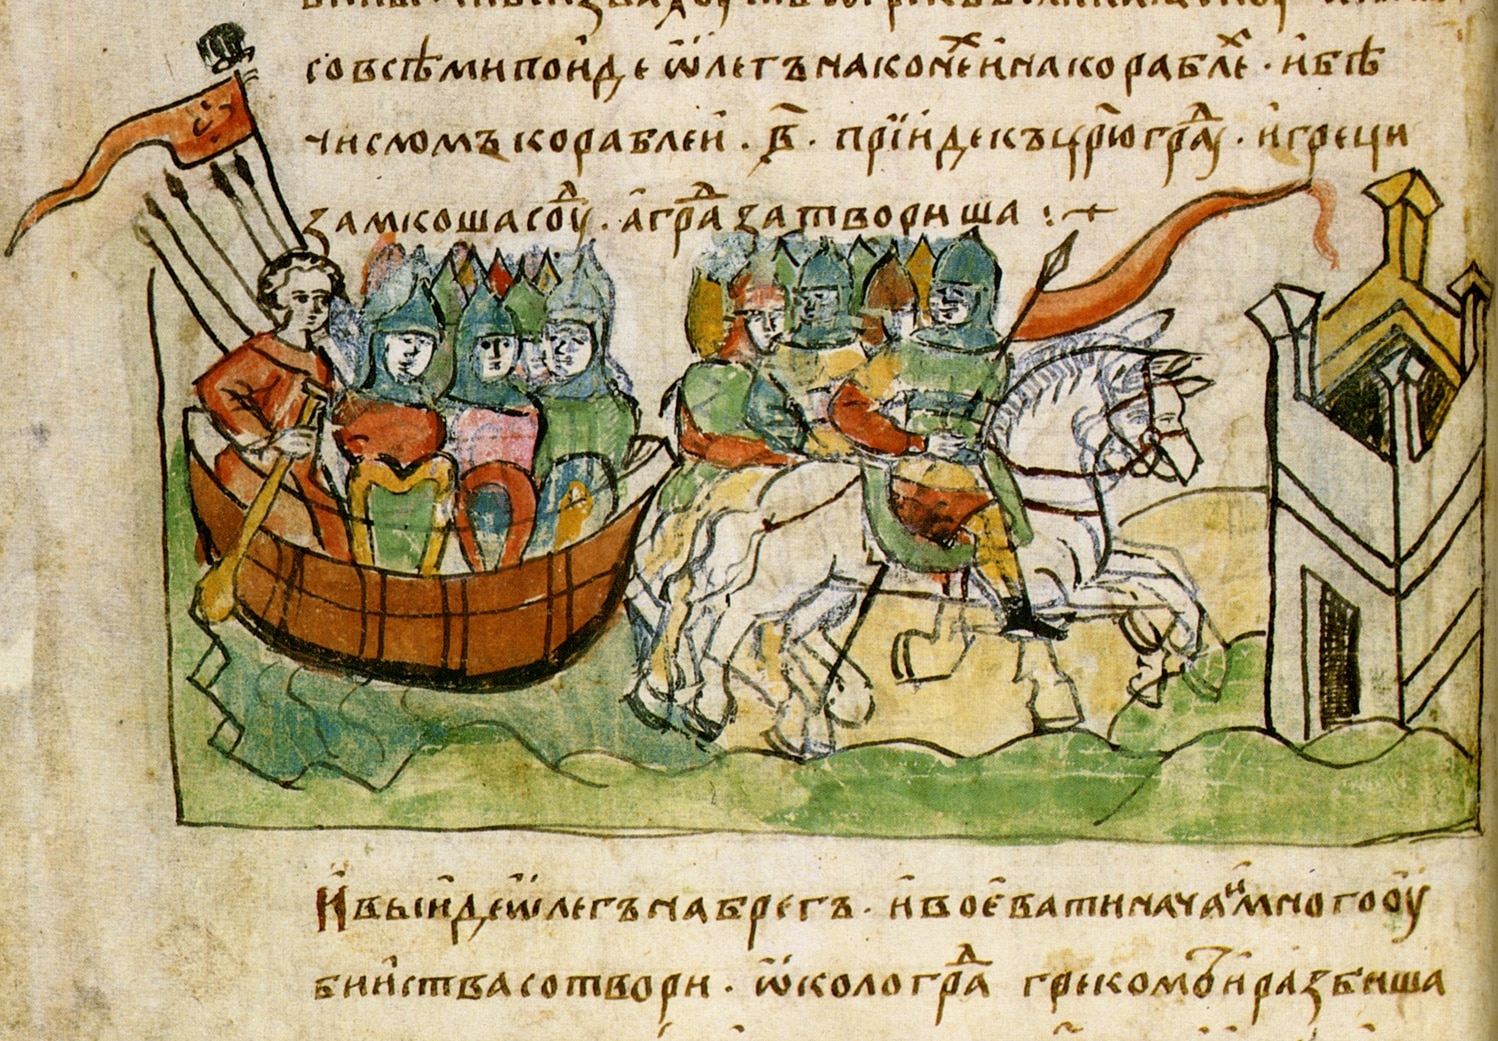 со всѣми пои́де ѡ҆легъ на коне҆х и҆ на корабле҆х · и҆ бѣ
числомъ кораблеи҆ · в҃ · прїи́де къ цр҃югра́дꙋ · и҆ греци
замкоша со́у́д · а҆ гра́д затвориша :·
И҆ вы́и́де ѡ҆легъ на брегъ · и҆ вое҆вати нача · и҆ много оу҆
бии҆ства сотвори · ѡ҆коло гра́да грекомъ · и҆ разбиша